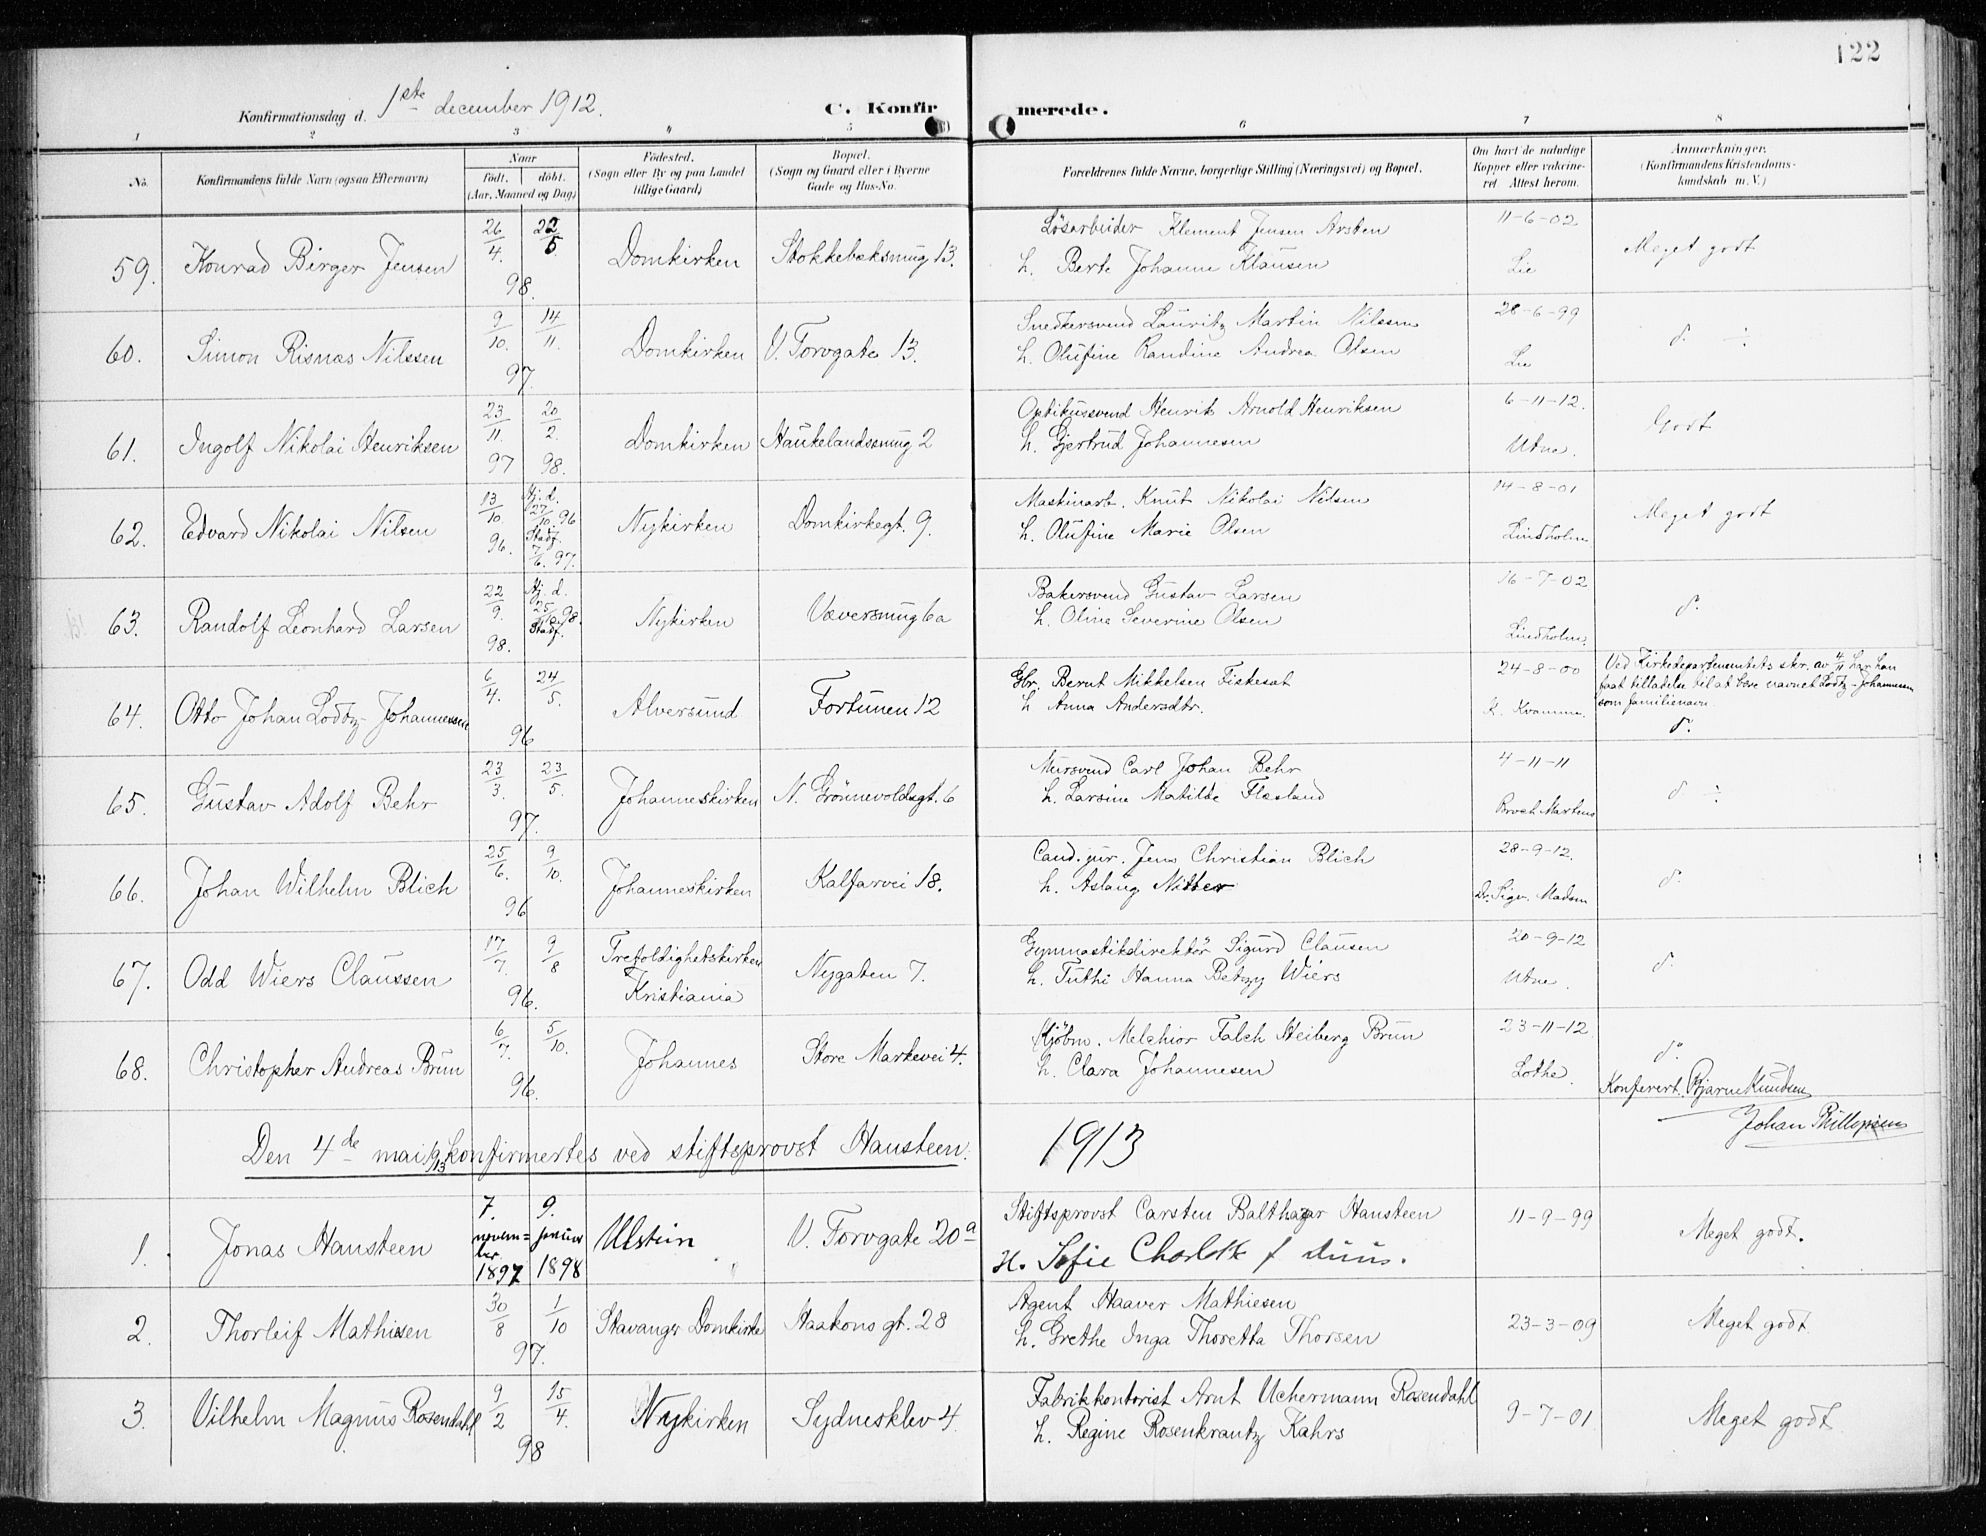 122
Konfirmationsdag d. 1ste december 1912. C. Konfirmerede.
1 2 3 4 5 6 7 8
No. Konfirmandens fulde Navn (ogsaa Efternavn) Naar født. døbt. (Aar, Maaned og Dag) Fødested. (Sogn eller By og paa Landet tillige Gaard) Bopæl. (Sogn og Gaard eller i Byerne Gade og Hus-No. Forældrenes fulde Navne, borgerlige Stilling (Næringsvei) og Bopæl. Om havt de naturlige Kopper eller vakcineret. Attest herom. Anmærkninger. (Konfirmandens Kristendomskundskab m. V.)
59. Konrad Birger Jensen 26/4. 22/5. 98. Domkirken Stokkebæksmug 13. Løsarbeider Klement Jensen Arsten 11-6-02 Meget godt
h. Berte Johanne Klausen Lie
60. Simon Risnæs Nilssen 9/10. 14/11. 97. Domkirken V. Torvgate 13. Snedkersvend Lauritz Martin Nilssen 28-6-99 d. ÷
h. Olufine Randine Andrea Olsen Lie
61. Ingolf Nikolai Henriksen 23/11. 97 20/2. 98. Domkirken Haukelandssmug 2 Optikussvend Henrik Arnold Henriksen 6-11-12. Godt
h. Gjertrud Johannesen Utne.
62. Edvard Nikolai Nilsen 13/10. 96. Hj. d. 27/10. 96 Stadf. 7/6. 97. Nykirken Domkirkegt. 9. Maskinarb. Knut Nikolai Nilsen 14-8-01 Meget godt
h. Olufine Marie Olsen Lindholm
63. Randolf Leonhard Larsen 22/9. 98. Hj. d. 25/9 98. Stadf. Nykirken Væversmug 6a Bakersvend Gustav Larsen 16-7-02 d.
h. Oline Severine Olsen Lindholm.
64. Otto Johan Lodtz-Johannessen 6/4. 24/5. 96 Alversund Fortunen 12 Gbr. Bernt Mikkelsen Fiskesat 24-8-00 Ved Kirkedepartementets skr. av 4/11 har han
faat tilladelse til at bære navnet Lodtz-Johannessen
som familienavn.
h Anna Andersdtr. K. Kvamme. d.
65. Gustav Adolf Behr 23/3. 23/5. 97. Johanneskirken N. Grönnevoldsgt. 6 Mursvend Carl Johan Behr 4-11-11 d ÷
h. Larsine Matilde Flesland Provst Martens
66. Johan Wilhelm Blich 25/6. 9/10. 96 Johanneskirken Kalfarvei 18. Cand. jur. Jens Christian Blich 28-9-12. d.
h. Aslaug Nitter Dr. Sigv. Madsen
67. Odd Wiers Claussen 17/7. 9/8 96. Trefoldighetskirken Kristiania Nygaten 7. Gymnastikdirektör Sigurd Clausen 20-9-12 d.
h. Tuthi Hanna Betzy Wiers Utne.
68. Christopher Andreas Brun 6/7. 5/10. 96. Johannes Store Markevei 4. Kjöbm. Melchior Falch Heiberg Brun 23-11-12 d.
h. Clara Johannesen Lothe.
Konfervert. Bjarne Knudsen
Johan Phillipsen
Den 4de mai konfirmertes ved stiftsprovst Hansteen. 1913
1. Jonas Hansteen 7. november 1897 9. januar 1898 Ulstein V. Torvgate 20a Stiftsprovst Carsten Balthazar Hansteen 11-9-99 Meget godt.
H. Sofie Charlotte f duus.
2. Thorleif Mathiesen 30/8 1/10 97. Stavanger Domkirke Haakons gt. 28 Agent Haaver Mathiesen 23-3-09 Meget godt.
h. Grethe Inga Thoretta Thorsen
3. Vilhelm Magnus Rosendahl 9/2 15/4. 98 Nykirken Sydnesklev 4. Fabrikkontorist Arnt Uchermann Rosendahl 9-7-01 Meget godt
h. Regine Rosenkrantz Kahrs